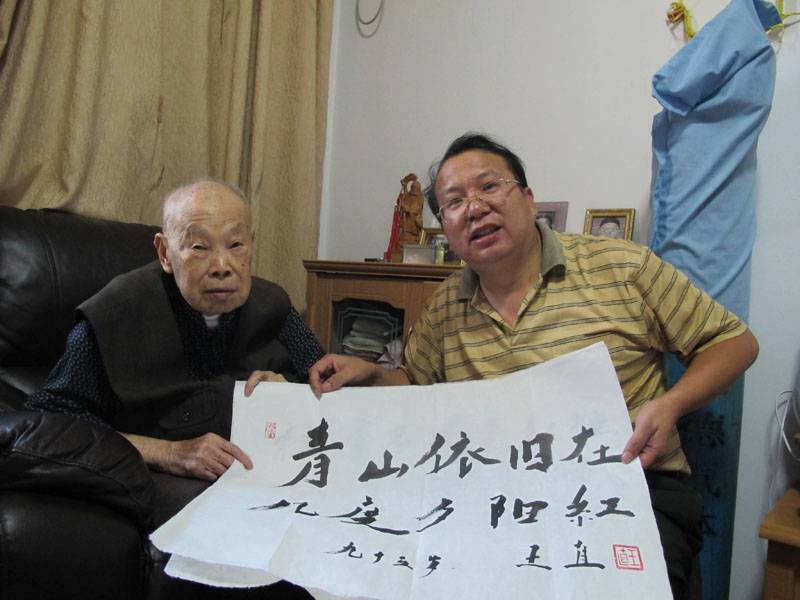 青山依旧在
几度夕阳红
九十五岁 王直